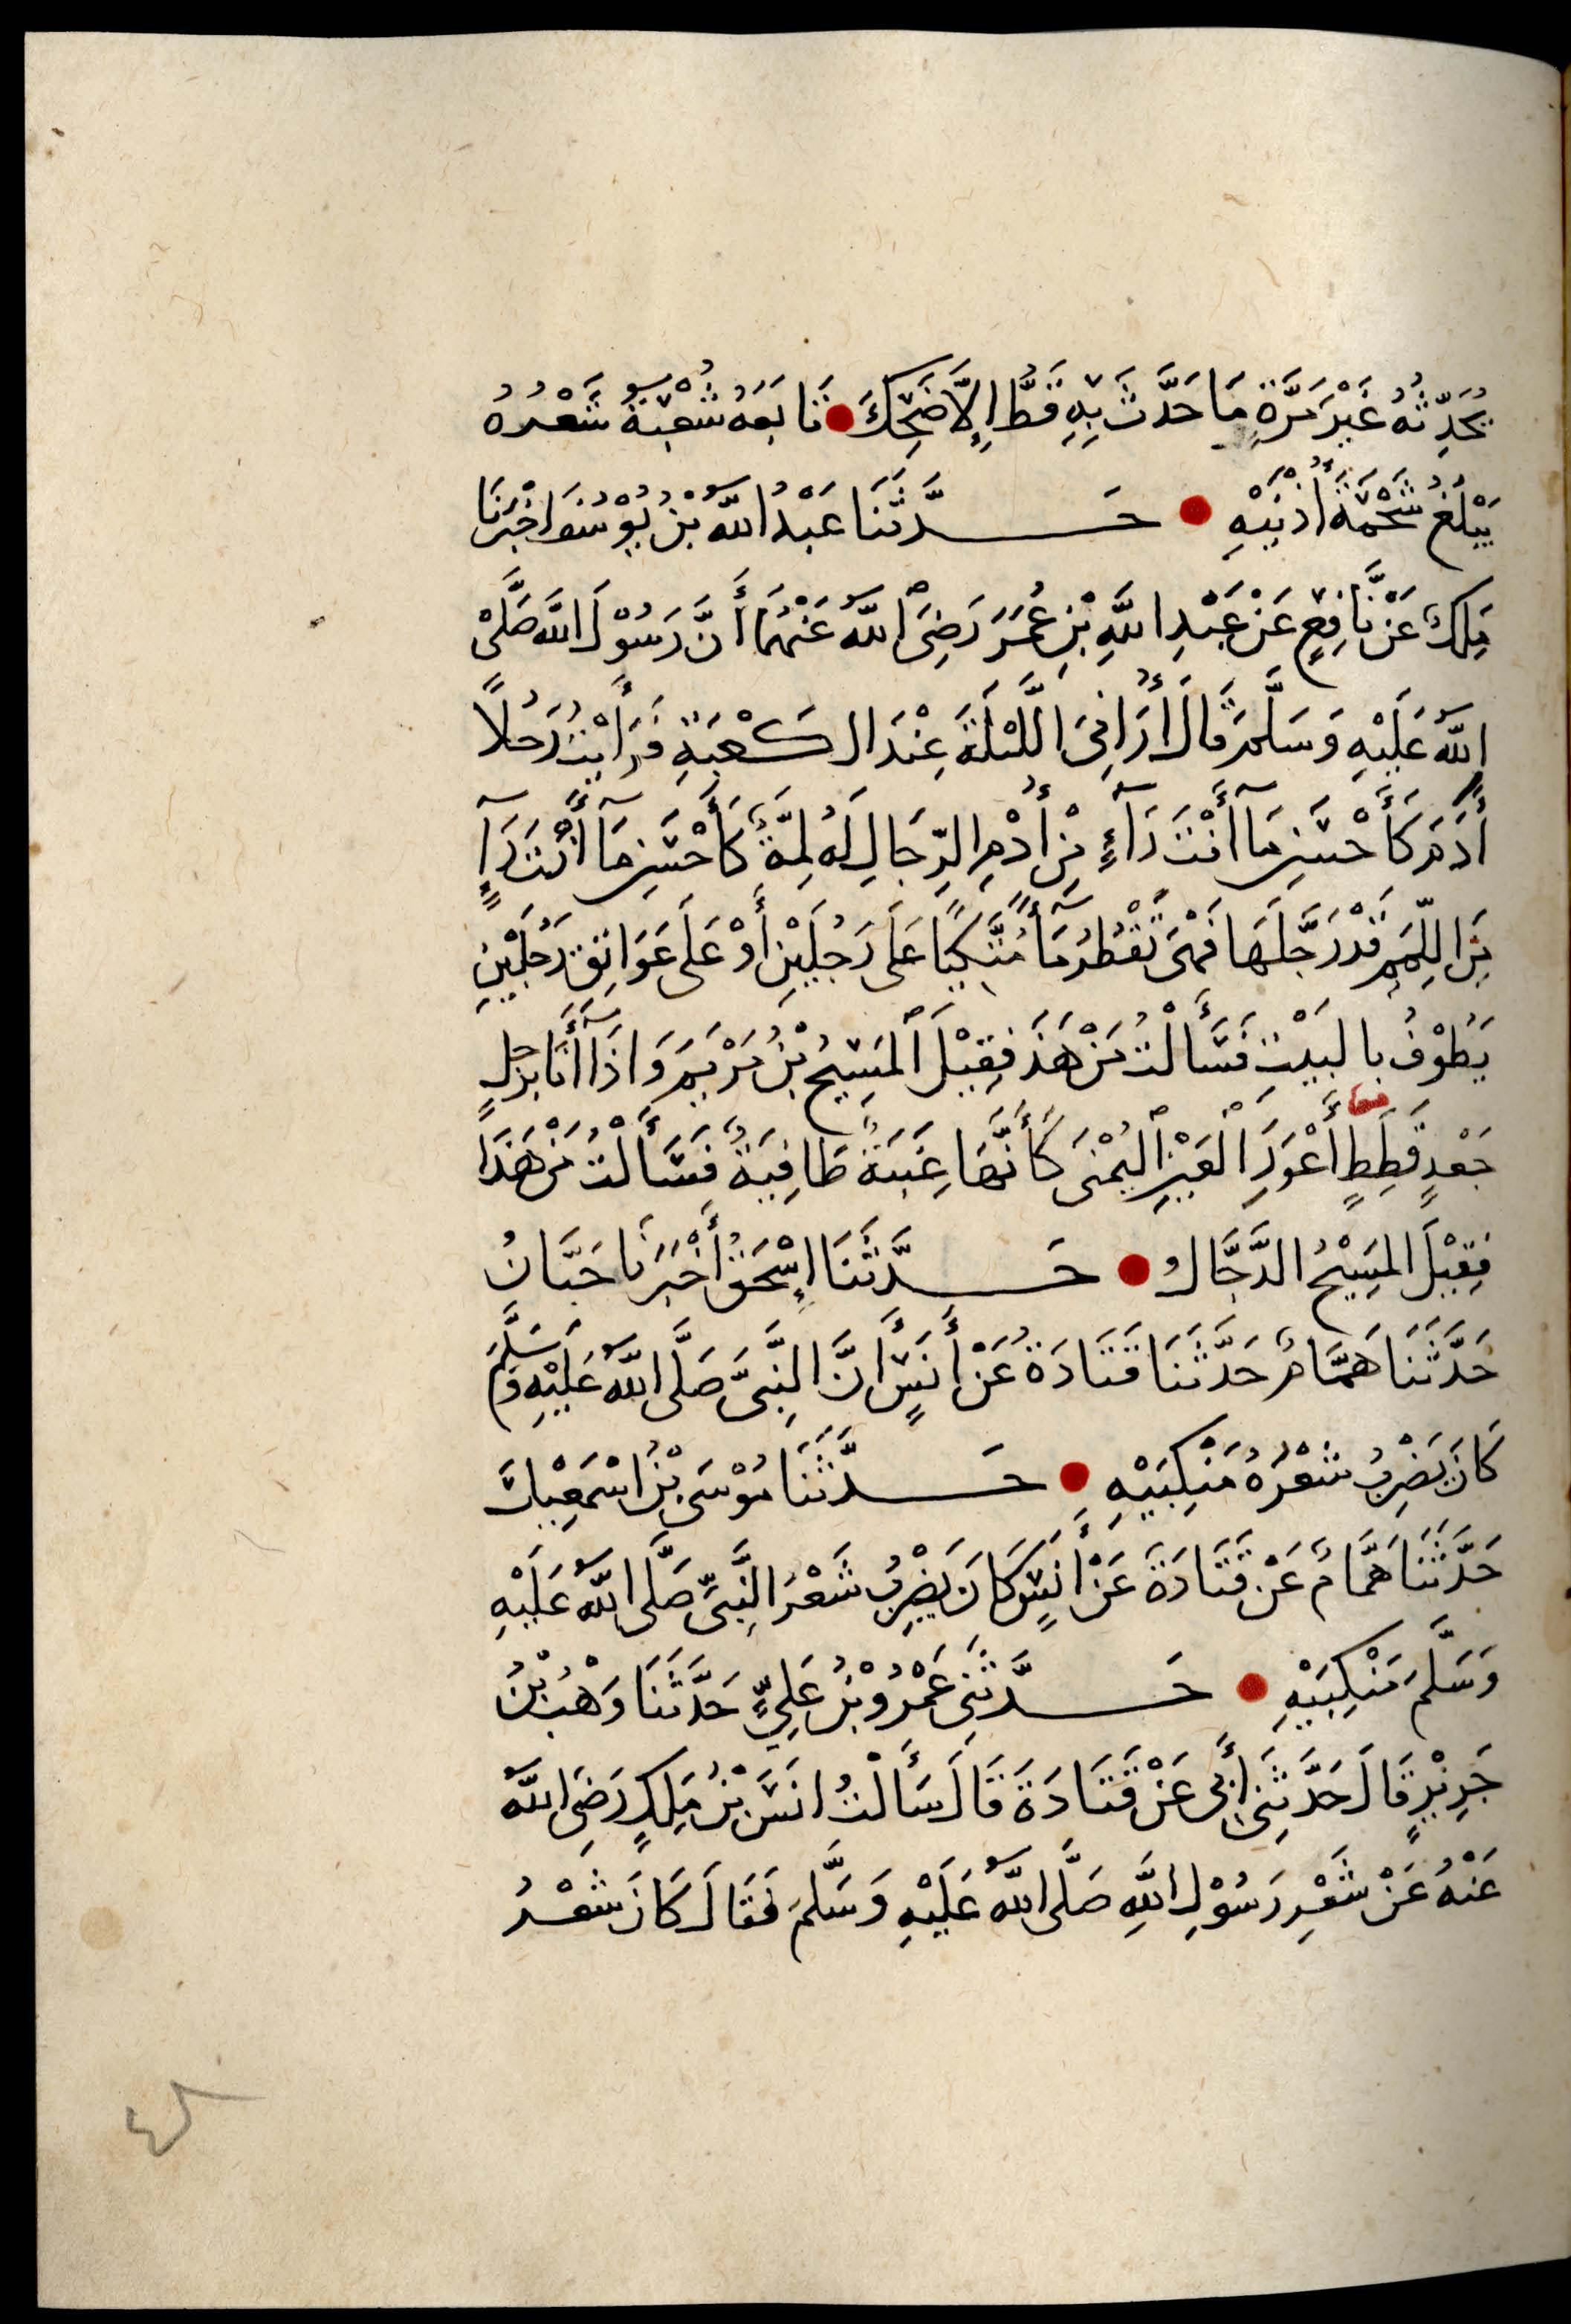 يُحَدِّثُهُ غَيْرَ مَرَّةٍ مَا حَدَّثَ بِهِ قَطُّ إِلَّا ضَحِكَ ● تَابَعَهُ شُعْبَةُ شَعْرُهُ
يَبْلُغُ شَحْمَةَ أُذْنَيْهِ ● حَدَّثَنَا عَبْدُ اللهِ بْنُ يُوْسُفَ اخْبَرَنَا
مَلِكٌ عَنْ نَّافِعٍ عَنْ عَبْدِ اللهِ بْنِ عُمَرَ رَضِىَ اللهُ عَنْهُمَا أَنَّ رَسُوْلَ اللهِ صَلَّى
اللهُ عَلَيْهِ وَسَلَّمَ قَالَ أُرَانِىَ اللَّيْلَةَ عِنْدَ الْكَعْبَةِ فَرَأَيْتُ رَجُلًا
أٰدَمَ كَأَحْسَنِ مَآ أَنْتَ رَآءٍ مِنْ أُدْمِ الرِّجَالِ لَهُ لِمَّةٌ كَأَحْسَنِ مَآ أَنْتَ رَآءٍ
مِنَ اللِّمَمِ قَدْ رَجَّلَهَا فَهْىَ تَقْطُرُ مَآءً مُتَّكِيًا عَلَى رَجُلَيْنِ أَوْ عَلَى عَوَاتِقِ رَجُلَيْنِ
يَطُوْفُ بِالْبَيْتِ فَسَأَلْتُ مَنْ هَذَا فَقِيْلَ الْمَسِيْحُ بْنُ مَرْيَمَ وَاِذَآ أَنَا بِرَجُلٍ
جَعْدٍ قَطِطٍ أَعْوَرِ الْعَيْنِ الْيُمْنَى كَأَنَّهَا عِنَبَةٌ طَافِيَةٌ فَسَأَلْتُ مَنْ هَذَا
فَقِيْلَ الْمَسِيْحُ الدَّجَّالُ ● حَدَّثَنَا إِسْحَقُ أَخْبَرَنَا حَبَّانُ
حَدَّثَنَا هَمَّامٌ حَدَّثَنَا قَتَادَةُ عَنْ أَنَسٍ أَنَّ النَّبِىَّ صَلَّى اللهُ عَلَيْهِ وَسَلَّمَ
كَانَ يَضْرِبُ شَعْرُهُ مَنْكِبَيْهِ ● حَدَّثَنَا مُوْسَى بْنُ اسْمَعِيْلَ
حَدَّثَنَا هَمَّامٌ عَنْ قَتَادَةَ عَنْ أَنَسٍ كَانَ يَضْرِبُ شَعْرُ النَّبِىِّ صَلَّى اللهُ عَلَيْهِ
وَسَلَّمَ مَنْكِبَيْهِ ● حَدَّثَنِى عَمْرُو بْنُ عَلِيٍّ حَدَّثَنَا وَهْبُ بْنُ
جَرِيْرٍ قَالَ حَدَّثَنِى أَبِى عَنْ قَتَادَةَ قَالَ سَأَلْتُ انَسَ بْنَ مَلِكٍ رَضِىَ اللهُ
عَنْهُ عَنْ شَعْرِ رَسُوْلِ اللهِ صَلَّى اللهُ عَلَيْهِ وَسَلَّمَ فَقَالَ كَانَ شَعْرُ